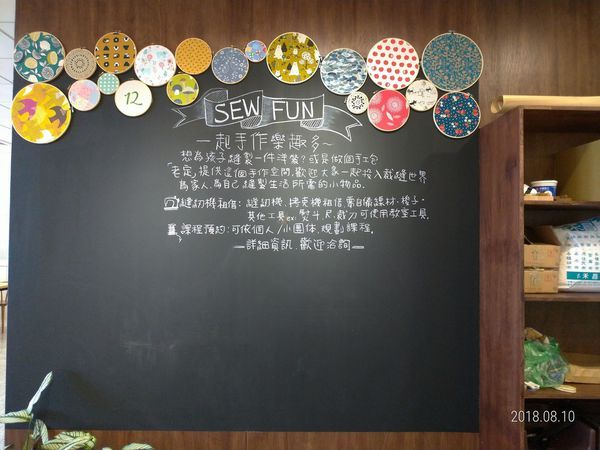 12
SEW FUN
一起手作樂趣多~
想為孩子縫製一件洋裝？或是做個手工包
「老定」提供這個手作空間.歡迎大家一起投入裁縫世界
為家人.為自己縫製生活所需的小物品.
縫紉機租借：縫紉機.拷克機租借.需自備線材.梭子.
其他工具ex:熨斗.尺.裁刀.可使用教室工具.
課程預約：可依個人/小團体.規劃課程。
—詳細資訊.歡迎洽詢—
2018.08.10